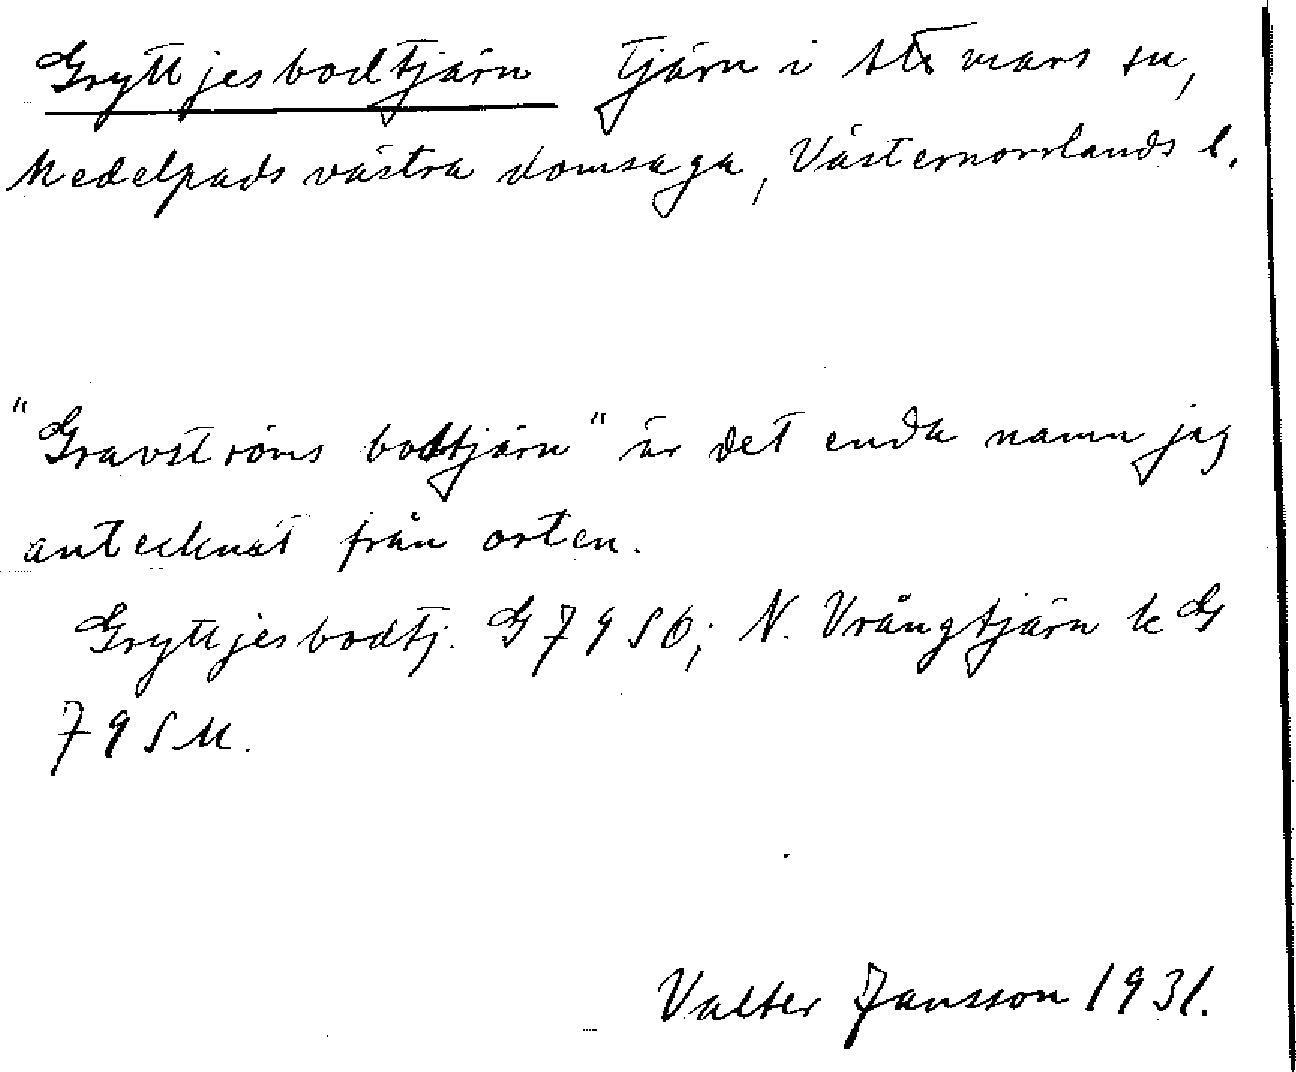 Gryttjesbodtjärn Tjärn i Attmars sn,
Medelpads västra domsaga, Västernorrlands l.
"Gravströms bodtjärn" är det enda namn jag
antecknat från orten.
Gryttjesbodtj. G 79 SO; N. Vrångtjärn k G
79 SU.
Valter Jansson 1931.